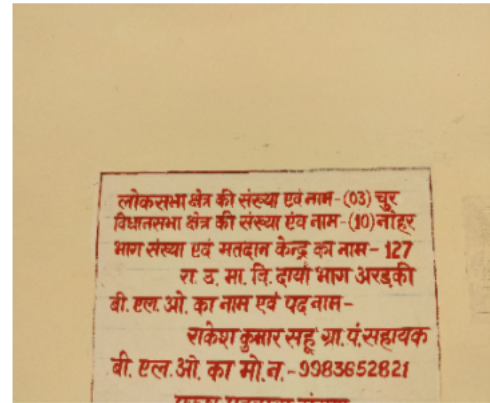 लोकसभा क्षेत्र की संख्या एवं नाम-(03) चुर
विधानसभा क्षेत्र की संख्या एंव नाम-(10) नोहर
भाग संख्या एवं मतदान केन्द्र का नाम- 127
रा. उ. मा. वि. दायाँ भाग अरड़की
बी. एल. ओ. का नाम एवं पद नाम-
राकेश कुमार सहू ग्रा. पं. सहायक
बी. एल. ओ. का मो. न.-9983652821